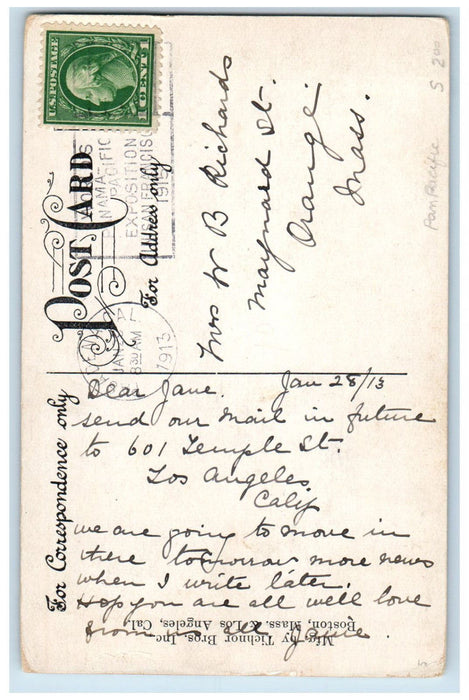 U.S. POSTAGE
1 CENT 1
NAMA-
PACIFIC
EXPOSITION
SAN FRANCISCO
1915
POST CARD
For Address only
CAL
JAN
8 30 AM
1913
Mrs W B Richards
Maynard St.
Orange
Mass.
Pan Pacific
For Correspondence only
Dear Jane. Jan 28/13
send our mail in future
to 601 Temple St.
Los Angeles
Calif
we are going to move in
there tomorrow more news
when I write later.
Hop you are all well love
from all
Mfg. by Tichnor Bros. Inc.
Boston, Mass. & Los Angeles, Cal.